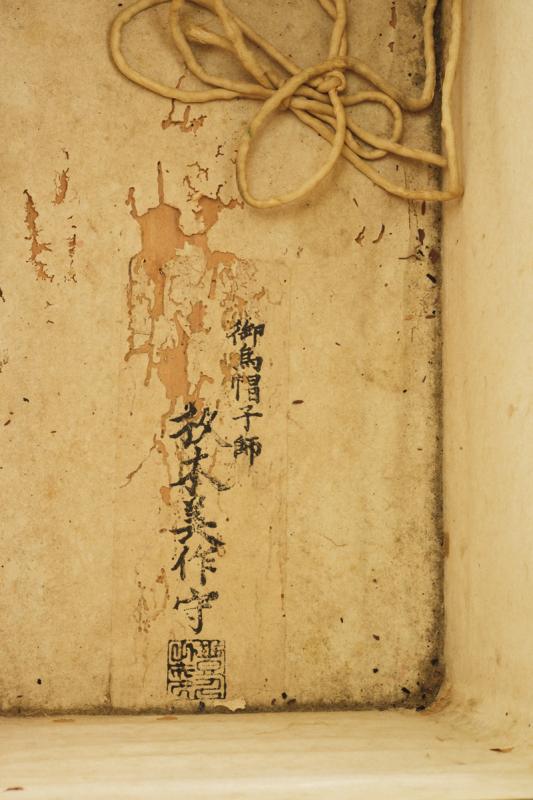 御烏帽子師
秋木美作守